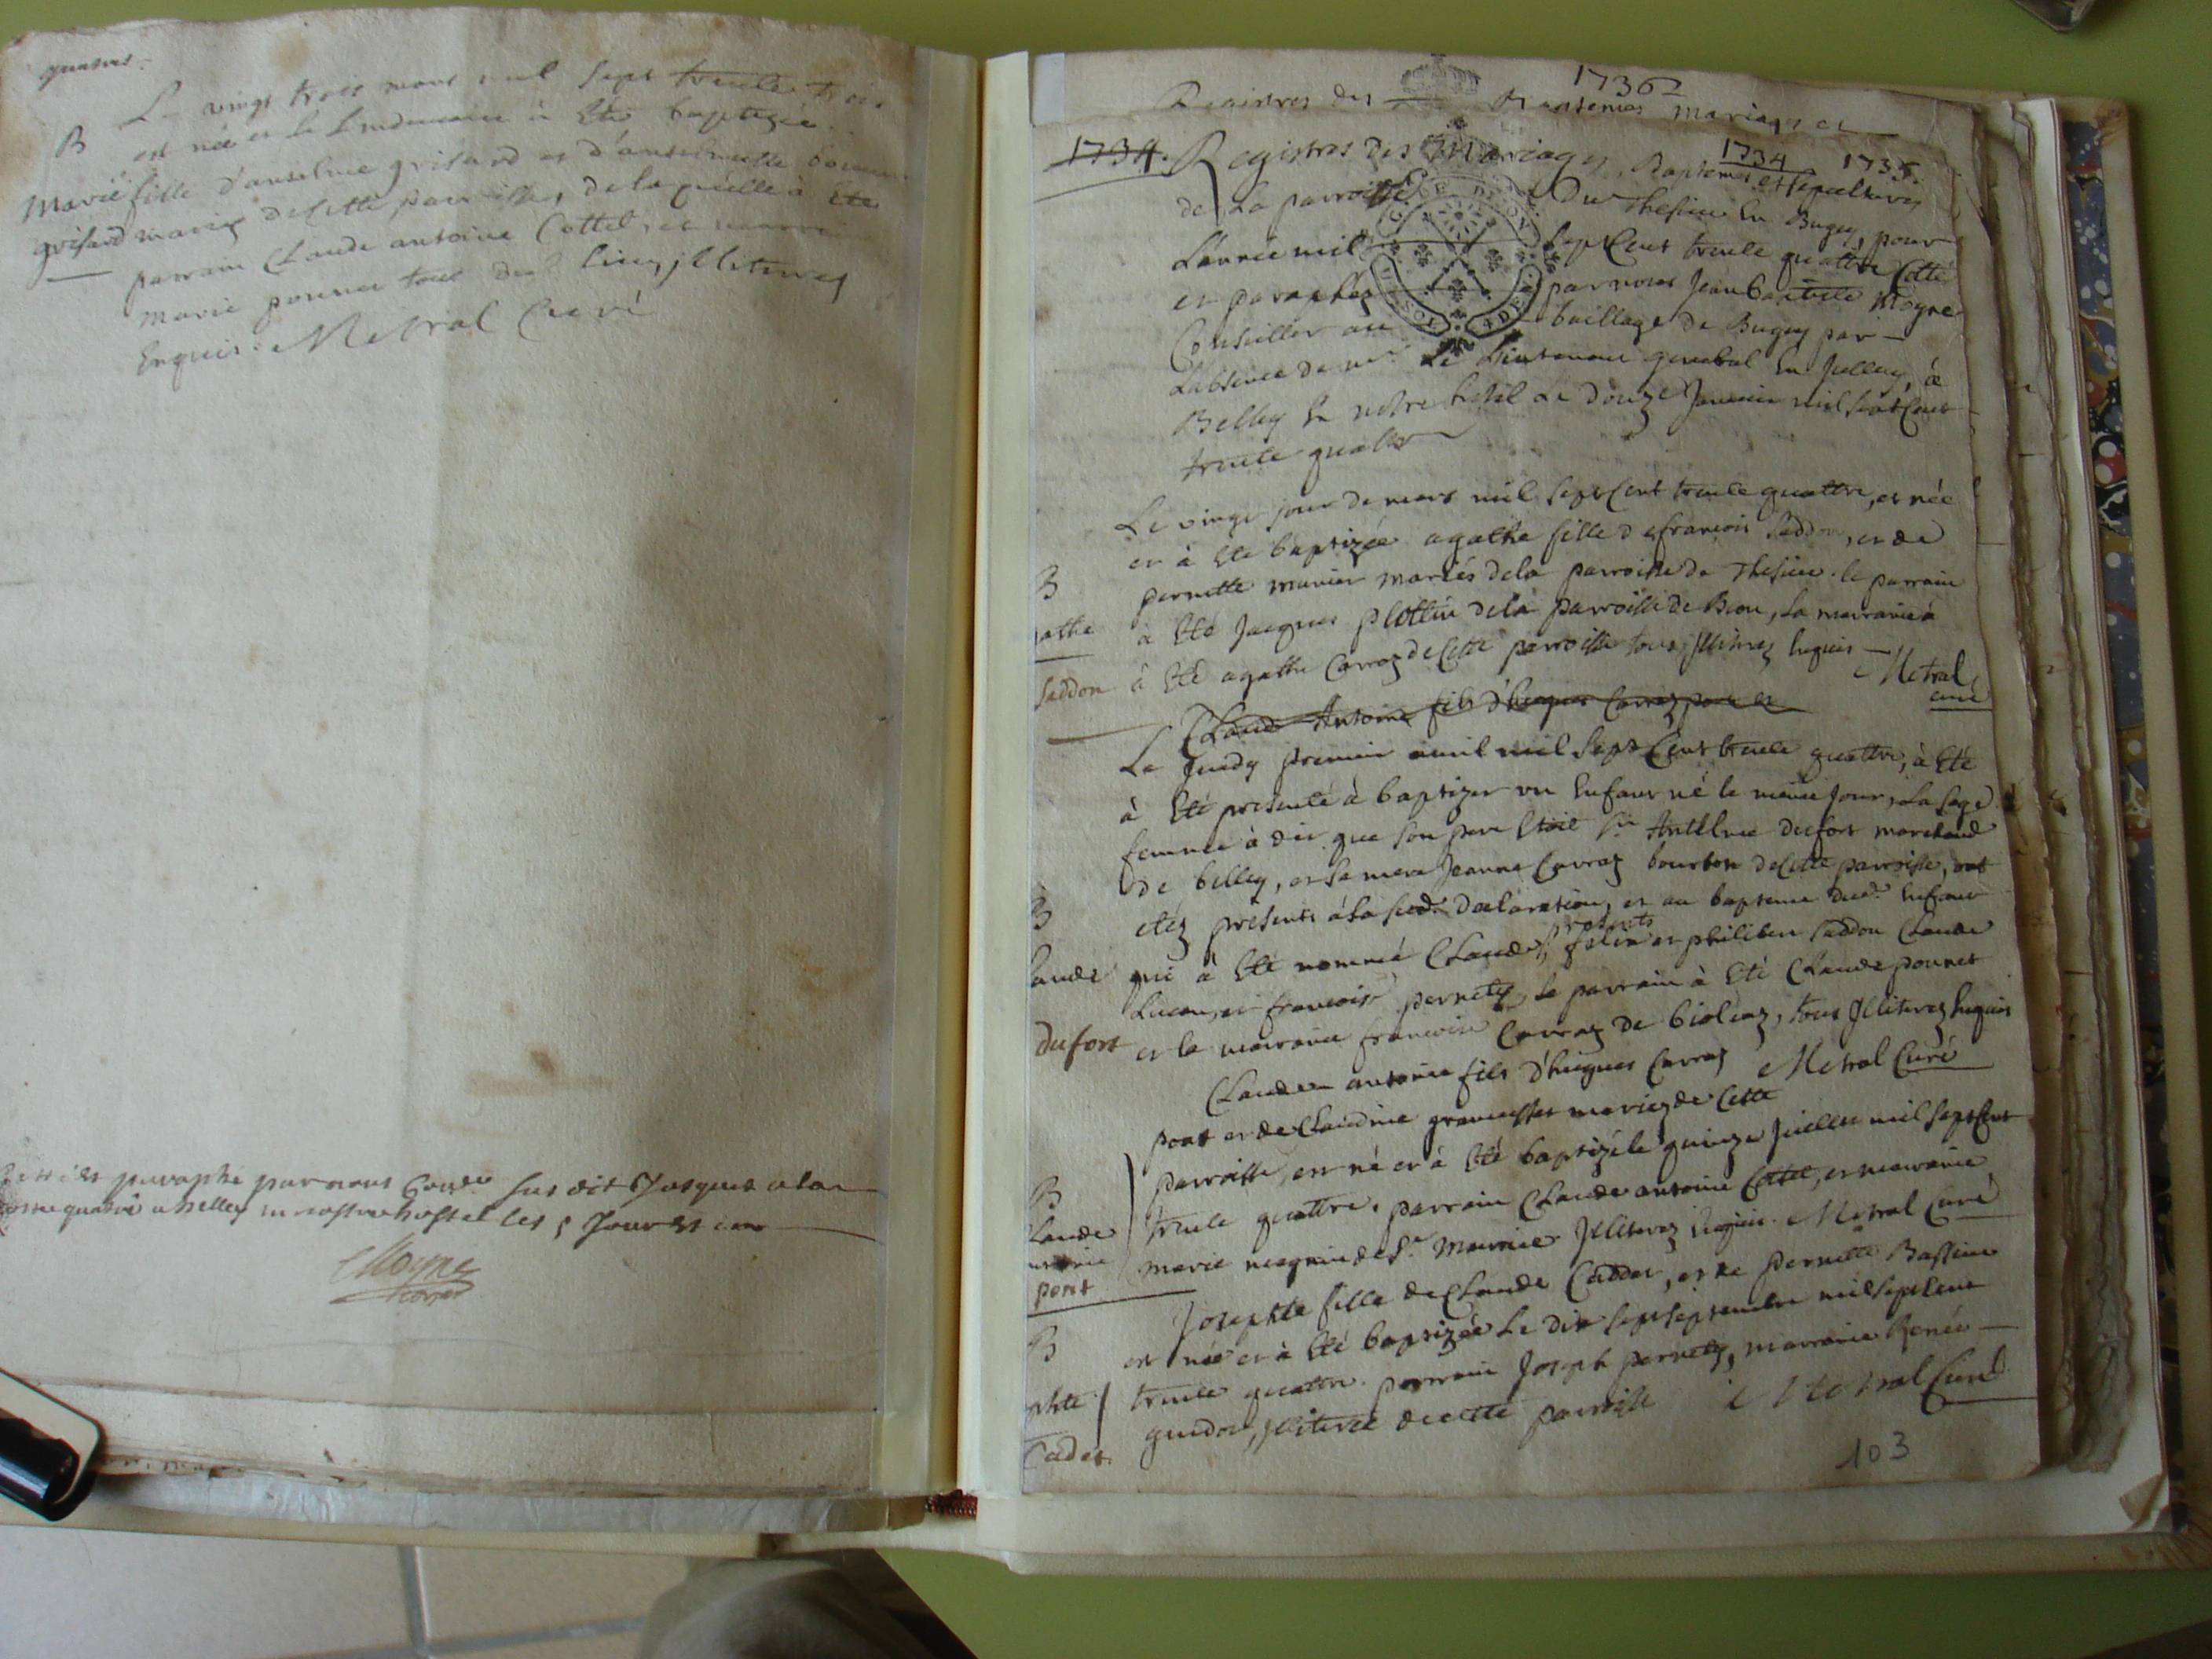 Le vingt trois mars mil sept trente trois
B est née et le lendemain à été baptizée
Marie fille d'anselme grisard et d'anselmette
grisard mariez de cette parroisse, de laquelle à été
parrain Claude antoine Cottel, et marraine
marie tous illiterez
Enquis. Metral Curé
paraphé par nous sus dit Jusques a la
a belley en nostre hostel les 5 Jour et an
Moyne
1736
Registres des Baptemes mariages et
1734. Registres des Mariages, Baptemes et sepultures 1734 1735
de La parroisse Du Thesieu En Bugey, pour
L'année mil sept Cent trente quattre Cotté
et paraphez par nous Jean baptiste Moyne
Conseiller au baillage de Bugey par
L'absence de mr. Le Lieutenant general En Belley, à
Belley En notre hotel Le Douze Janvier mil sept Cent
trente quatre
Le vingt jour de mars mil sept Cent trente quattre, est née
et à Eté baptizée agathe fille de francois Saddon, et de
B pernette munier mariés de la parroisse de Thesieu. le parrain
athe à Eté Jacques plottin de la parroisse de Bron, la marraine à
Saddon à Eté agathe Carraz de Cette parroisse tous illiterez Enquis Metral
curé
Claude Antoine fils d'hugues Carraz pont et
Le Jeudy premier avril mil sept Cent trente quattre, à Eté
à Eté presenté à baptizer un Enfant né le même Jour, La sage
femme à dit que son pere Etoit Sr. Anthelme dufort marchand
de belley, et sa mere Jeanne Carraz bourton de Cette parroisse, ont
B etéz presents à la susd. declaration, et au bapteme dud. Enfant
presents
laude qui à Eté nommé Claude, felix et philibert Saddon Claude
Lucan, et francois pernety, Le parrain à Eté Claude ponnet
dufort et la marraine francoise Carraz de bioleaz, tous Illiterez Enquis
Claude antoine fils d'hugues Carraz Metral Curé
pont et de Claudine gramusset mariez de Cette
B parroisse, est né et à Eté baptizé le quinze Juillet mil sept Cent
laude trente quattre, parrain Claude antoine Cottel, et marraine
pont marie neyrin de St. Maurice Illiterez Enquis. Metral Curé
Josephte fille de Claude Caddet, et de pernette Bassieu
B est née et à Eté baptizée Le dix sept septembre mil sept Cent
phte trente quattre. parrain Joseph pernety, marraine Renée
Cadet. guidon, Illiterée de cette parroisse Metral Curé
103